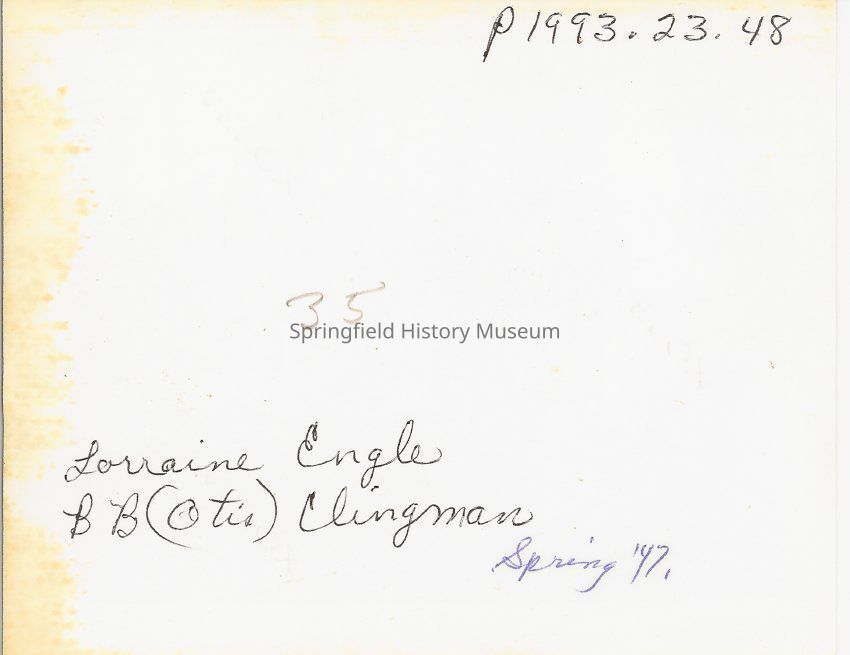 P1993.23.48
35
Springfield History Museum
Lorraine Engle
B B (Otis) Clingman
Spring '47.